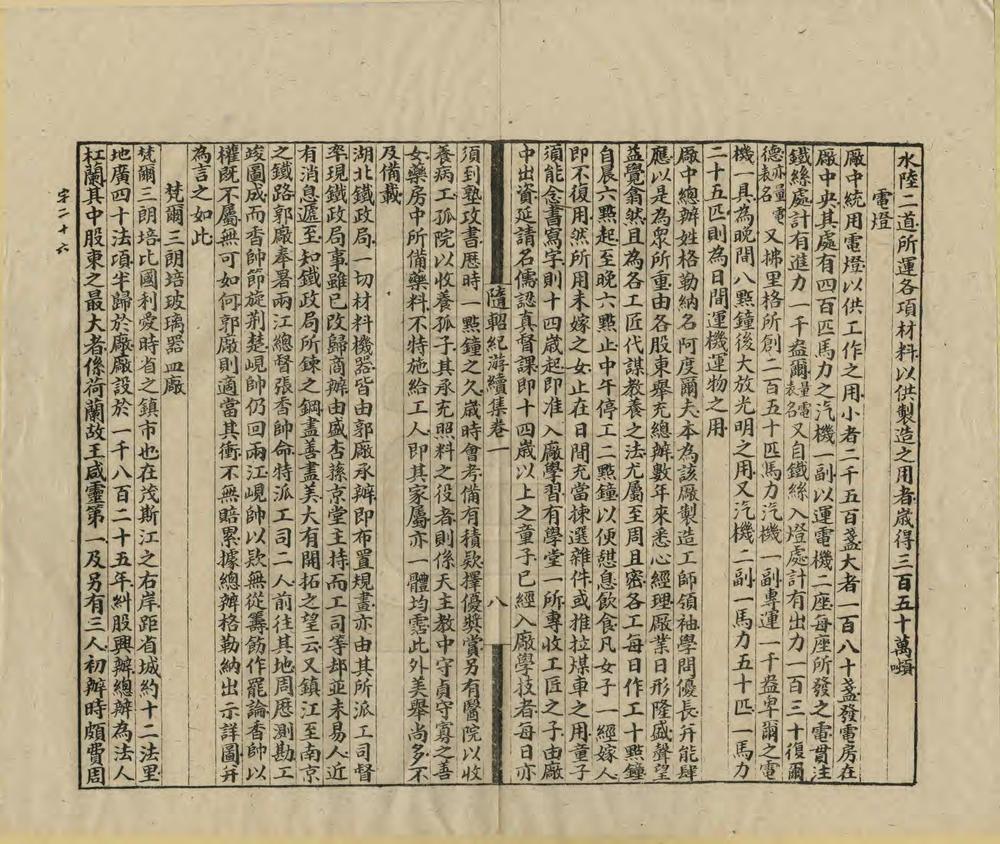 水陸二道所運各項材料以供製造之用者歲得三百五十萬噸
電燈
廠中統用電燈以供工作之用小者二千五百盞大者一百八十盞發電房在
廠中央其處有四百匹馬力之汽機一副以運電機二座每座所發之電貫注
鐵絲處計有進力一千盎爾量電表名又自鐵絲入燈處計有出力一百三十復爾
德亦量電表名又拂里格所創二百五十匹馬力汽機一副專運一千盎卑爾之電
機一具為晚間八點鐘後大放光明之用又汽機二副一馬力五十匹一馬力
二十五匹則為日間運機運物之用
廠中總辦姓格勒納名阿度爾夫本為該廠製造工師領袖學問優長并能肆
應以是為衆所重由各股東舉充總辦數年來悉心經理廠業日形隆盛聲望
益覺翕然且為各工匠代謀教養之法尤屬至周且密各工每日作工十點鐘
自晨六點起至晚六點止中午停工二點鐘以便憩息飲食凡女子一經嫁人
即不復用然所用未嫁之女止在日間充當揀選雜件或推拉煤車之用童子
須能念書寫字則十四歲起即准入廠學習有學堂一所專收工匠之子由廠
中出資延請名儒認真督課即十四歲以上之童子已經入廠學技者每日亦
隨軺紀游續集卷一
八
須到塾攻書歷時一點鐘之久歲時會考備有積欵擇優獎賞另有醫院以收
養病工孤院以收養孤子其承充照料之役者則係天主教中守貞守寡之善
女藥房中所備藥料不特施給工人即其家屬亦一體均霑此外美舉尚多不
及備載
湖北鐵政局一切材料機器皆由郭廠承辦即布置規畫亦由其所派工司督
率現鐵政局事雖已改歸商辦由盛杏蓀京堂主持而工司等却並未易人近
有消息遞至知鐵政局所鍊之鋼盡善盡美大有開拓之望云又鎮江至南京
之鐵路郭廠奉署兩江總督張香帥命特派工司二人前往其地周歷測勘工
竣圖成而香帥節旋荆楚峴帥仍回兩江峴帥以欵無從籌飭作罷論香帥以
權既不屬無可如何郭廠則適當其衝不無賠累據總辦格勒納出示詳圖并
為言之如此
梵爾三朗培玻璃器皿廠
梵爾三朗培比國利愛時省之鎮市也在茂斯江之右岸距省城約十二法里
地廣四十法項半歸於廠廠設於一千八百二十五年糾股興辦總辦為法人
杠蘭其中股東之最大者係荷蘭故王咸靈第一及另有三人初辦時頗費周
字二十六